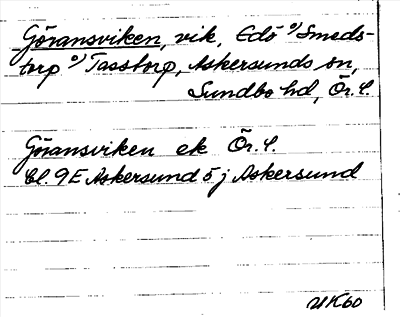 Göransviken, vik, Edö o/ Smeds-
torp o/ Tasstorp, Askersunds sn,
Sundbo hd, Ör. l.
Göransviken ek Ör. l.
Bl. 9E Askersund 5 j Askersund
UK60